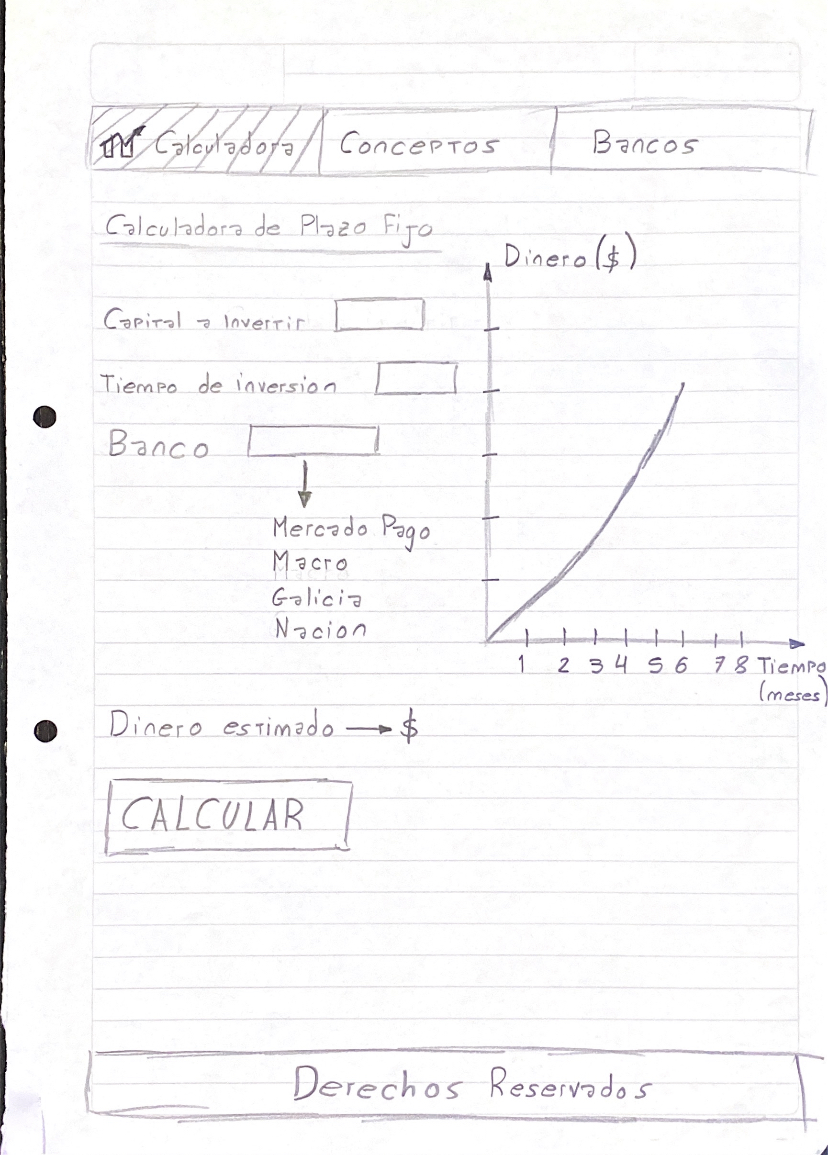 Calculadora Conceptos Bancos
Calculadora de Plazo Fijo
Dinero ($)
Capital a invertir
Tiempo de inversion
Banco
Mercado Pago
Macro
Galicia
Nacion
1 2 3 4 5 6 7 8 Tiempo
(meses)
Dinero estimado → $
CALCULAR
Derechos Reservados